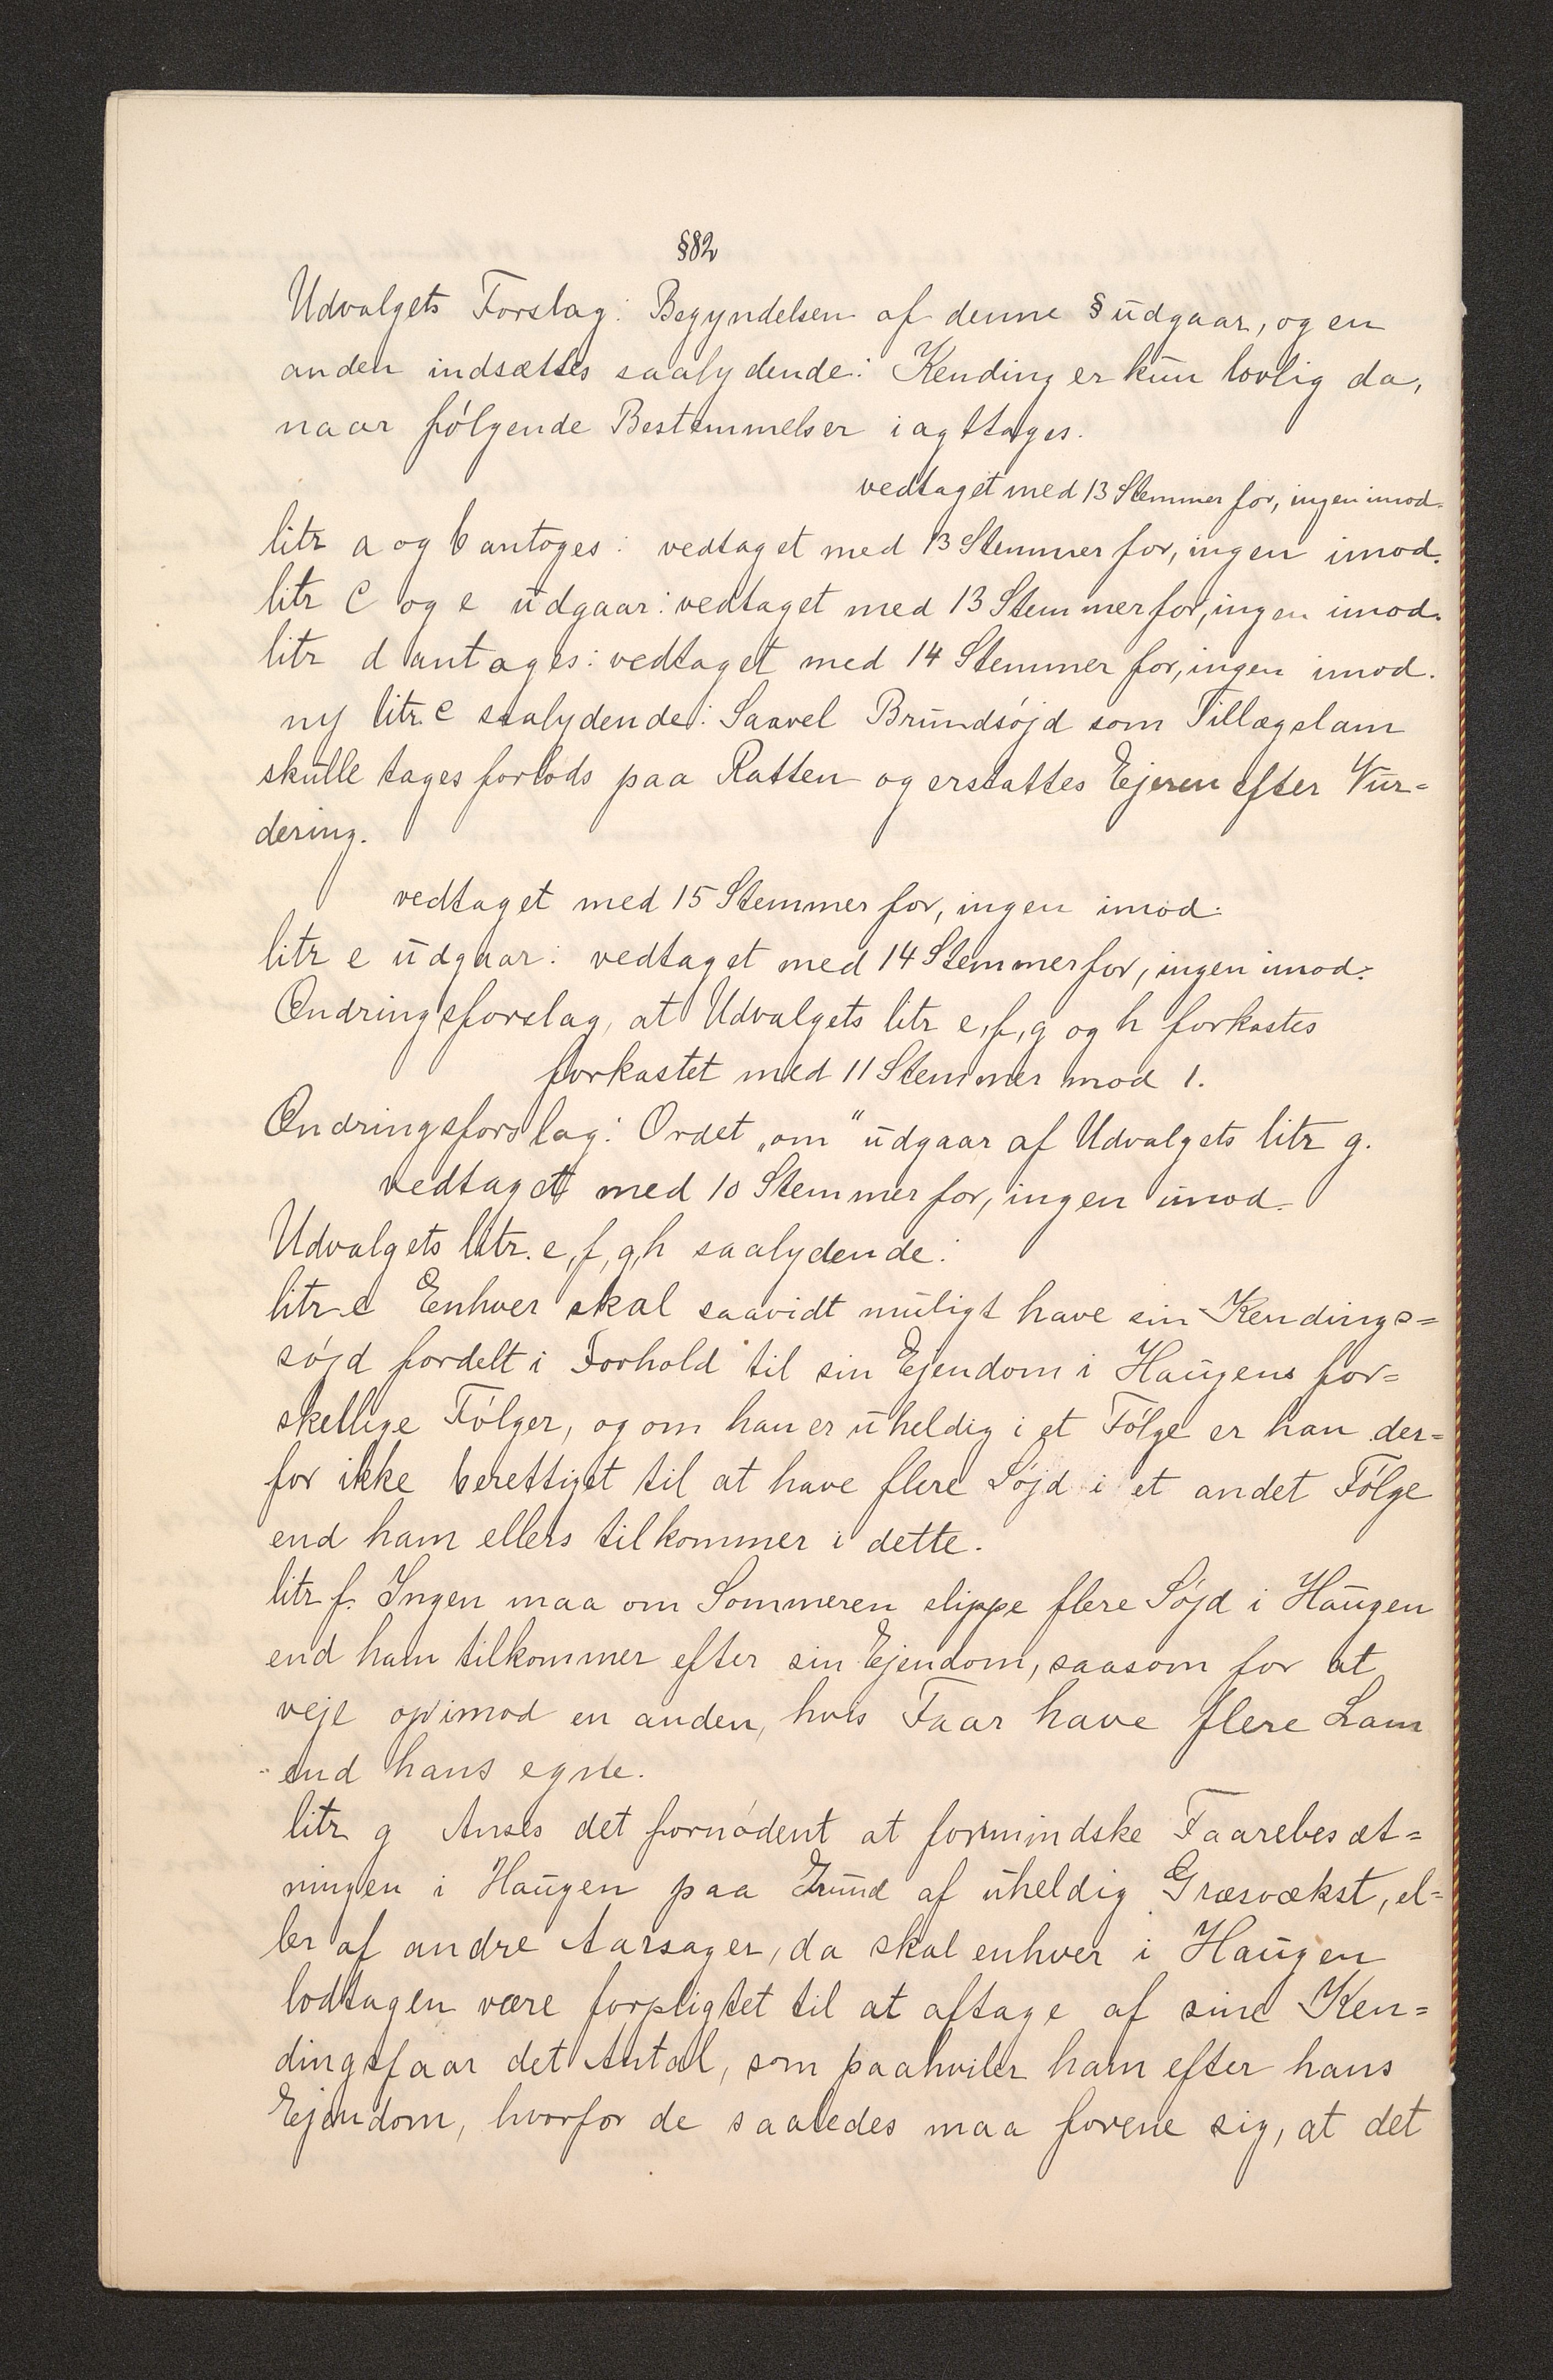 §82
Udvalgets Forslag: Begyndelsen af denne § udgaar, og en
anden indsættes saalydende: Kending er kun lovlig da,
naar følgende Bestemmelser iagttages.
vedtaget med 13 Stemmer for, ingen imod.
litr a og b antoges: vedtaget med 13 Stemmer for, ingen imod.
litr c og e udgaar: vedtaget med 13 Stemmer for, ingen imod.
litr d antages: vedtaget med 14 Stemmer for, ingen imod.
ny litr. c saalydende: Saavel Brundsøjd som Tillægslam
skulle tages forlods paa Ratten og erstattes Ejeren efter Vur=
dering.
vedtaget med 15 Stemmer for, ingen imod.
litr e udgaar: vedtaget med 14 Stemmer for, ingen imod.
Ændringsforslag, at Udvalgets litr e, f, g og h forkastes
forkastet med 11 Stemmer mod 1.
Ændringsforslag: Ordet „om“ udgaar af Udvalgets litr g.
vedtaget med 10 Stemmer for, ingen imod.
Udvalgets litr. e, f, g, h saalydende:
litr e Enhver skal saavidt muligt have sin Kendings=
søjd fordelt i Forhold til sin Ejendom i Haugens for=
skellige Følger, og om han er uheldig i et Følge er han der=
for ikke berettiget til at have flere Søjd i et andet Følge
end ham ellers tilkommer i dette.
litr f. Ingen maa om Sommeren slippe flere Søjd i Haugen
end ham tilkommer efter sin Ejendom, saasom for at
veje op imod en anden, hvis Faar have flere Lam
end hans egne.
litr g Anses det fornødent at formindske Faarebesæt=
ningen i Haugen paa Grund af uheldig Græsvækst, el=
ler af andre Aarsager, da skal enhver i Haugen
lodtagen være forpligtet til at aftage af sine Ken=
dingsfaar det Antal, som paahviler ham efter hans
Ejendom, hvorfor de saaledes maa forene sig, at det